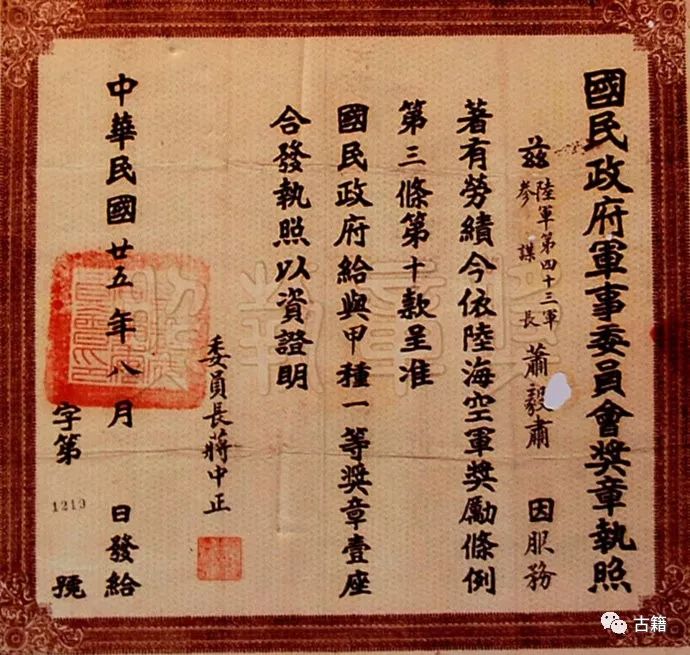 國民政府軍事委員會獎章執照
茲
陸軍第四十三軍
參謀長
蕭毅肅
因服務
著有勞績今依陸海空軍獎勵條例
第三條第十款呈准
國民政府給與甲種一等獎章壹座
合發執照以資證明
委員長蔣中正
中華民國廿五年八月 日發給
字第1219號
獎章執照
古籍